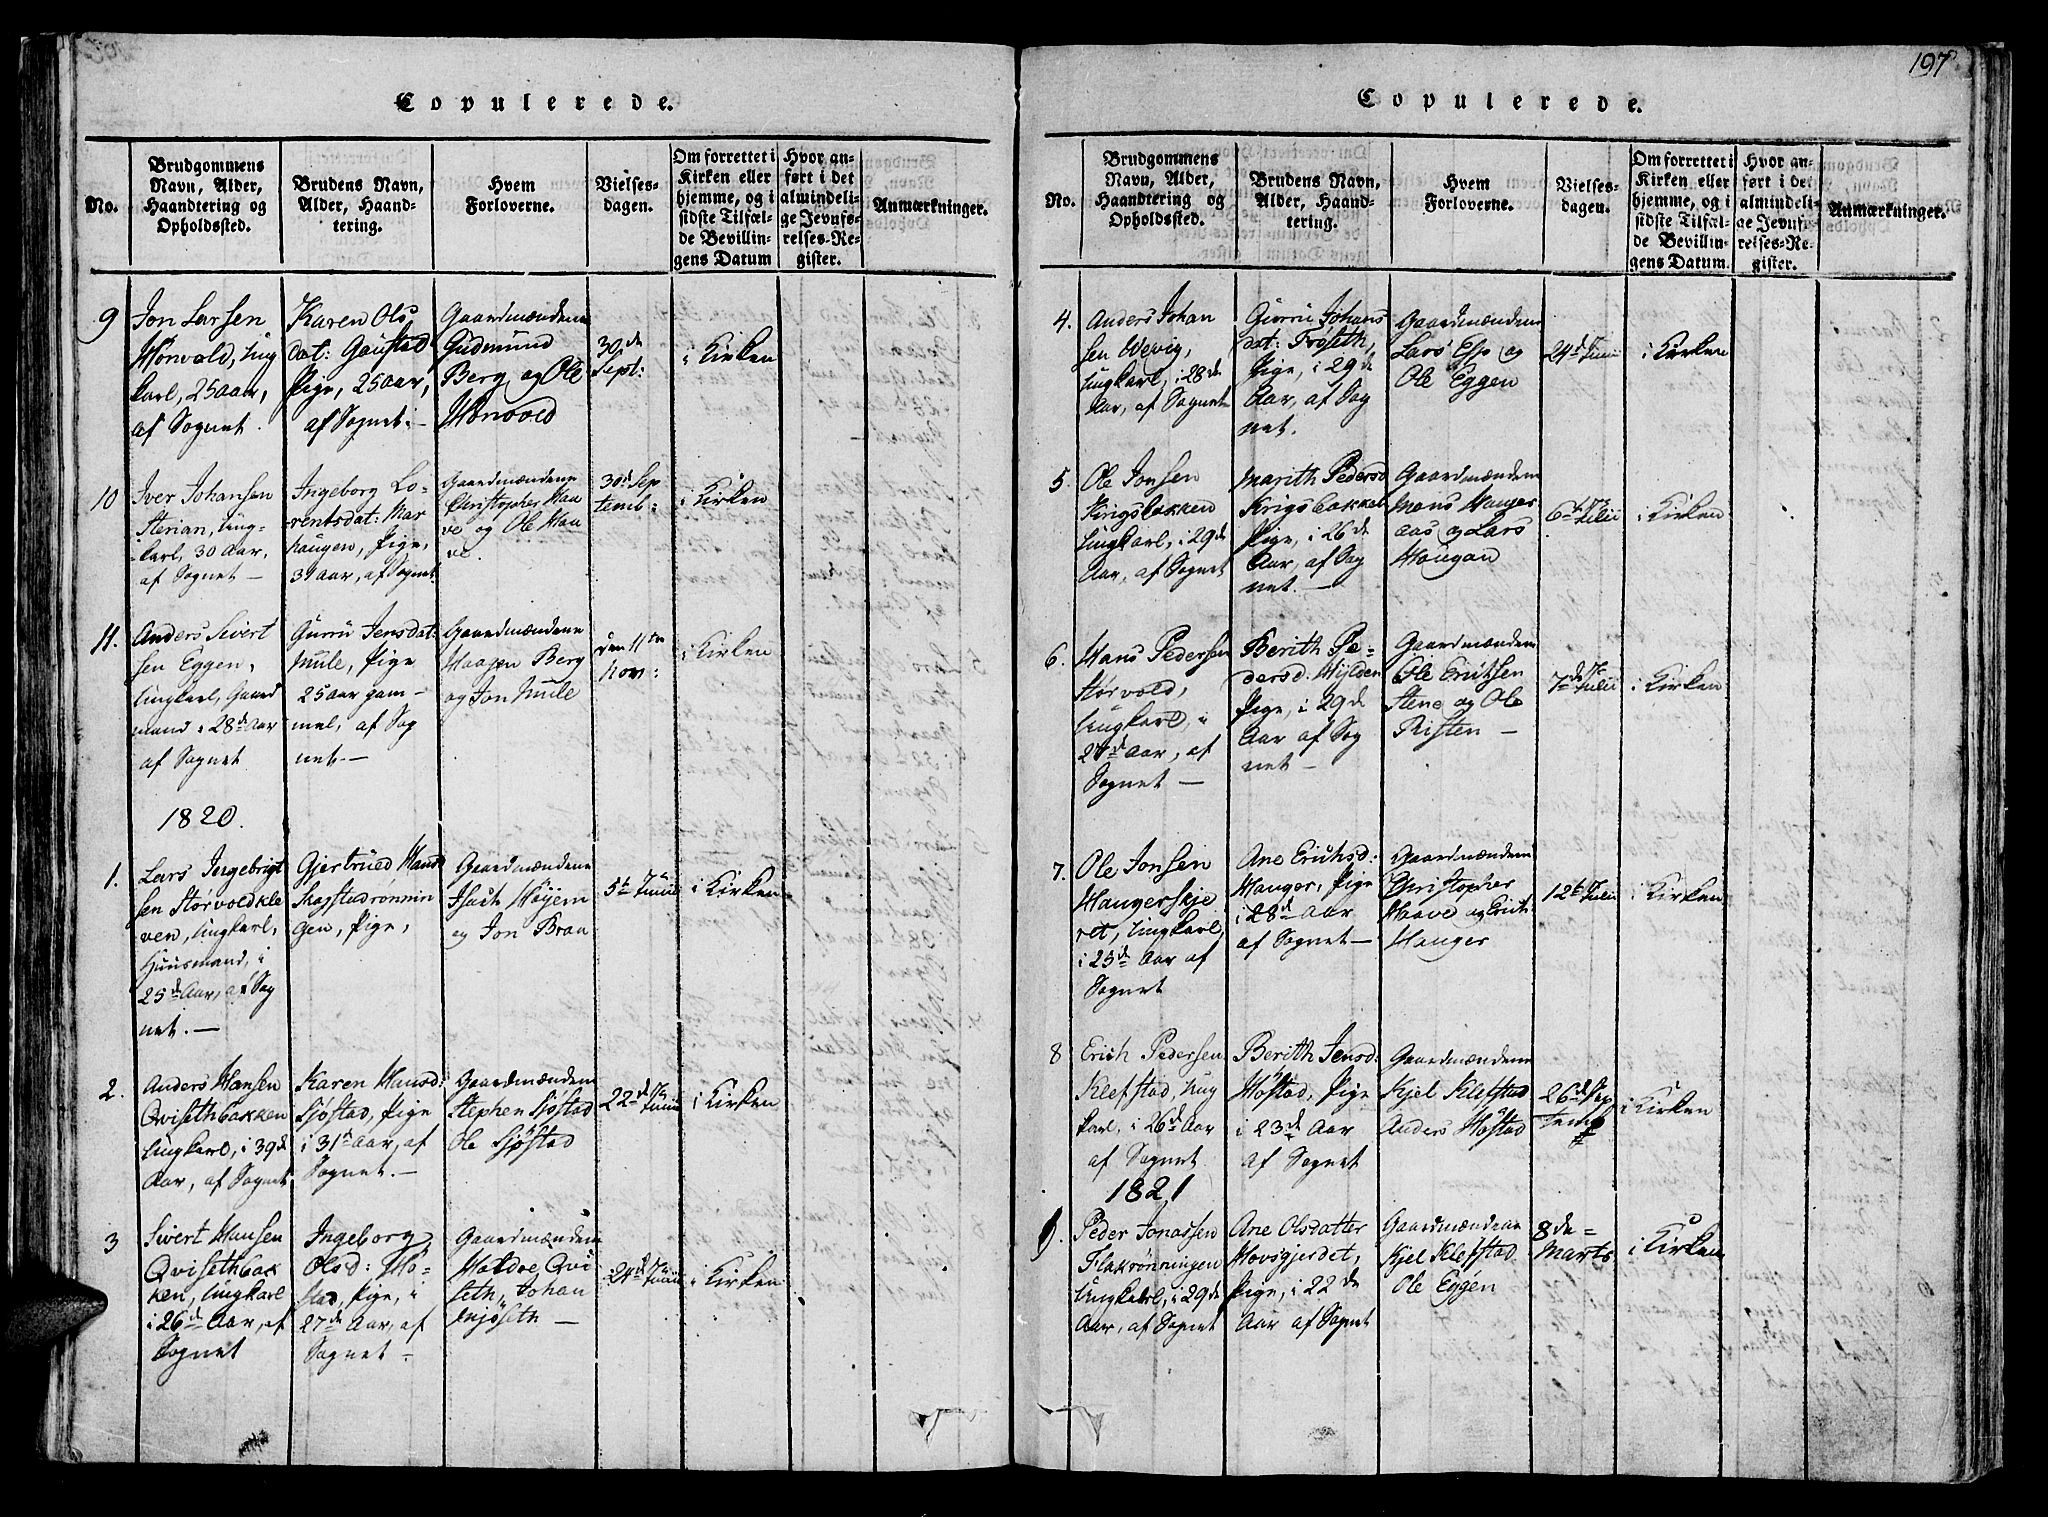 Copulerede.
No.
Brudgommens
Navn, Alder,
Haandtering og
Opholdssted.
Brudens Navn,
Alder, Haand-
tering.
Hvem
Forloverne.
Vielses-
dagen.
Om forrettet i
Kirken eller
hjemme, og i
sidste Tilfæl-
de Bevillin-
gens Datum
Hvor an-
ført i det
almindeli-
ge Jevnfø-
relses-Re-
gister.
Anmærkninger.
9
Jon Larsen
Hönvold, Ung
karl, 25 Aar,
af Sognet.
Karen Ols
dat: Gaustad
Pige, 25 Aar,
af Sognet.-
Gaardmændene
Gudmund
Berg og Ole
Hönvold
30de
Sept:
i Kirken
10
Iver Johansen
Stenan, Ung-
karl, 30 Aar,
af Sognet -
Ingeborg Lo-
rentsdat: Mar
haugen, Pige,
31 Aar, af Sognet
Gaardmændene
Christopher Haa
ve og Ole Haa
ve.
30d Sep
temb:
i Kirken
11.
Anders Sivert
sen Eggen,
Ungkarl, Gaard
mand i 28d Aar
af Sognet
Gurru Jensdat:
Mule, Pige
25 Aar gam-
mel, af Sog
net.-
Gaardmændene
Haagen Berg
og Jon Mule
den 11te
Nov:
i Kirken
1820.
1.
Lars Ingebrigt
sen Störvoldkle
ven, Ungkarl,
Huusmand, i
25d Aar, af Sog
net. -
Gjertrued Hansd
Skogstadrönnin
gen, Pige,
Gaardmændene
Isach Höyem
og Jon Brau
5te Junii
i Kirken
2.
Anders Hansen
Qvisethbakken
Ungkarl, i 39d
Aar, af Sognet
Karen Hansd:
Sjöstad, Pige
i 31d Aar, af
Sognet. -
Gaardmændene
Stephen Sjöstad
Ole Sjöstad
22d Junii
i Kirken
3
Sivert Hansen
Qvisethbak
ken, Ungkarl
i 26d Aar, af
Sognet
Ingeborg
Olsd: Hö-
stad, Pige, i
27de Aar, af
Sognet -
Gaardmændene
Haldoe Qvi
seth, Johan
-
24d Junii
i Kirken
197
Copulerede.
No.
Brudgommens
Navn, Alder,
Haandtering og
Opholdssted.
Brudens Navn,
Alder, Haand-
tering.
Hvem
Forloverne.
Vielses-
dagen.
Om forrettet i
Kirken eller
hjemme, og i
sidste Tilfæl-
de Bevillin-
gens Datum.
Hvor an-
ført i det
almindeli-
ge Jevnfø-
relses-Re-
gister.
Anmærkninger.
4.
Anders Johan
sen Wevig,
Ungkarl, i 28de
Aar, af Sognet
Gurru Johans
dat: Fröseth,
Pige, i 29de
Aar, af Sog
net.
Gaardmændene
Lars Esp og
Ole Eggen
24d Junii
i Kirken
5.
Ole Jonsen
Krigsbakken
Ungkarl, i 29de
Aar, af Sognet
Marith Pedersd
Krigsbakken
Pige, i 26de
Aar, af Sog
net. -
Gaardmændene
Mons Hanger
aas og Lars
Haugan
6te Julii
i Kirken
6.
Hans Pedersen
Störvold,
Ungkarl, i
27d Aar, af
Sognet -
Berith Pe-
dersd: Hylden
Pige, i 29de
Aar af Sog
net -
Gaardmændene
Ole Erichsen
Stene og Ole
Risten -
7de Julii
i Kirken
7.
Ole Jonsen
Hangerskje
ret, Ungkarl,
i 23d Aar af
Sognet
Ane Erichsd:
Hanger, Pige
i 28d Aar
af Sognet -
Gaardmændene
Christopher
Haave og Erich
Hanger
12te Julii
i Kirken
8
Erich Pedersen
Klefstad, Ung
karl, i 26d Aar
af Sognet
Berith Jensd:
Höstad, Pige
i 23d Aar
af Sognet
Gaardmændene
Kjel Klefstad
Anders Höstad
26d Sep
i Kirken
1821
1.
Peder Jonassen
Flakrönningen
Ungkarl, i 29de
Aar, af Sognet
Ane Olsdatter
Hovsgjerdet,
Pige, i 22de
Aar af Sognet
Gaardmændene
Kjel Klefstad
Ole Eggen
8de
Marts
i Kirken